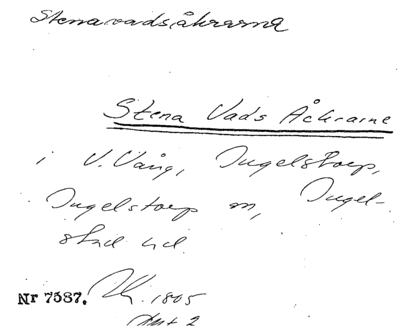 Stenavadsåkrarna
Stena Vads Åkrarne
i V. Vång, Ingelstorp,
Ingelstorp sn, Ingel-
stad hd.
Nr 7587. 1805
Akt 2